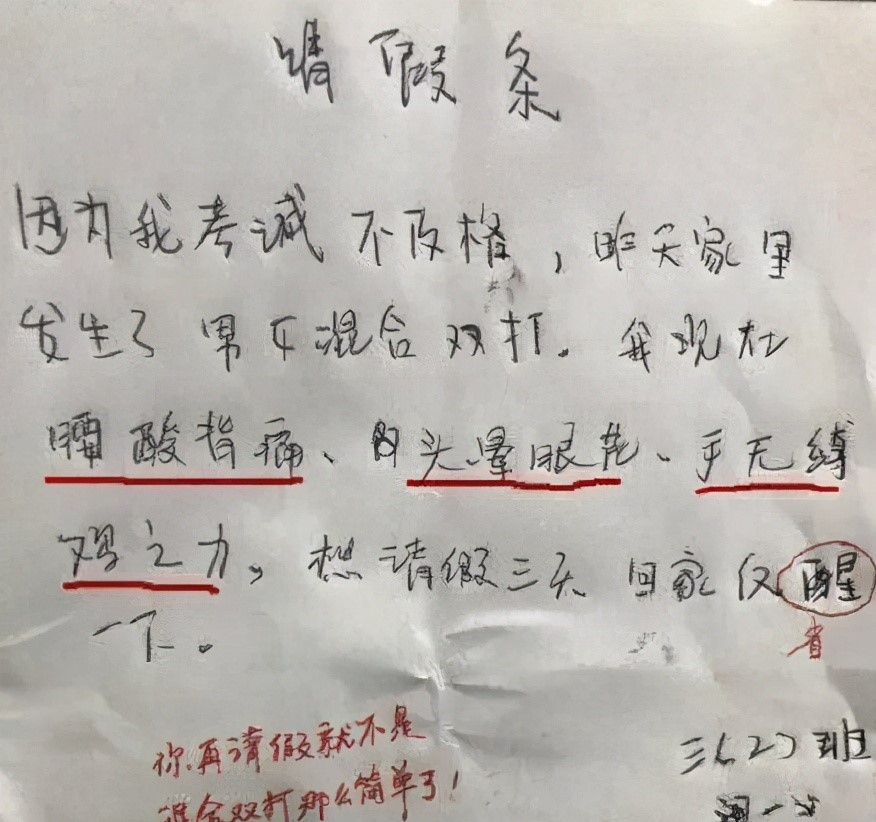 请假条
因为我考试不及格,昨天家里
发生了男女混合双打。我现在
腰酸背痛、头晕眼花、手无缚
鸡之力,想请假三天回家反醒
一下。
省
你再请假就不是
混合双打那么简单了!
三(2)班